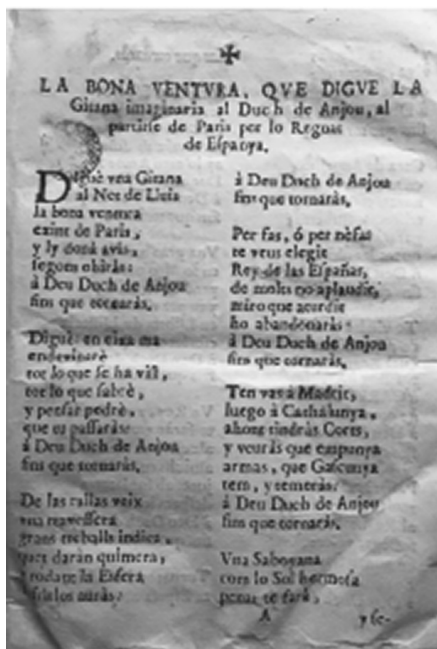 LA BONA VENTVRA, QVE DIGVE LA
Gitana imaginaria al Duch de Anjou, al
partirse de Paris per lo Regne
de Espanya.
Diguè vna Gitana
al Net de Lluis
la bona ventura
exint de Paris,
y ly donà avis,
segons obiràs:
à Deu Duch de Anjou
fins que tornaràs.
Diguè: en eixa ma
endevinarè
tot lo que se ha vist,
tot lo que sabrè,
y pensar podrè,
que et passarà:
à Deu Duch de Anjou
fins que tornaràs.
De las rallas veix
vna travessera
grans treballs indica,
daràn quimera,
rodant la Esfera
à Deu Duch de Anjou
fins que tornaràs.
Per fas, ó per nèfas
te veus elegit
Rey de las Españas,
de molts no aplaudit,
miro que acudit
ho abandonaràs:
à Deu Duch de Anjou
fins que tornaràs.
Ten vas à Madrit,
luego à Cathalunya,
ahont tindràs Corts,
y veuràs que empunya
armas, que Gascunya
tem, y temeràs:
à Deu Duch de Anjou
fins que tornaràs.
Vna Saboyana
com lo Sol hermosa
penar te farà,
A
y se-